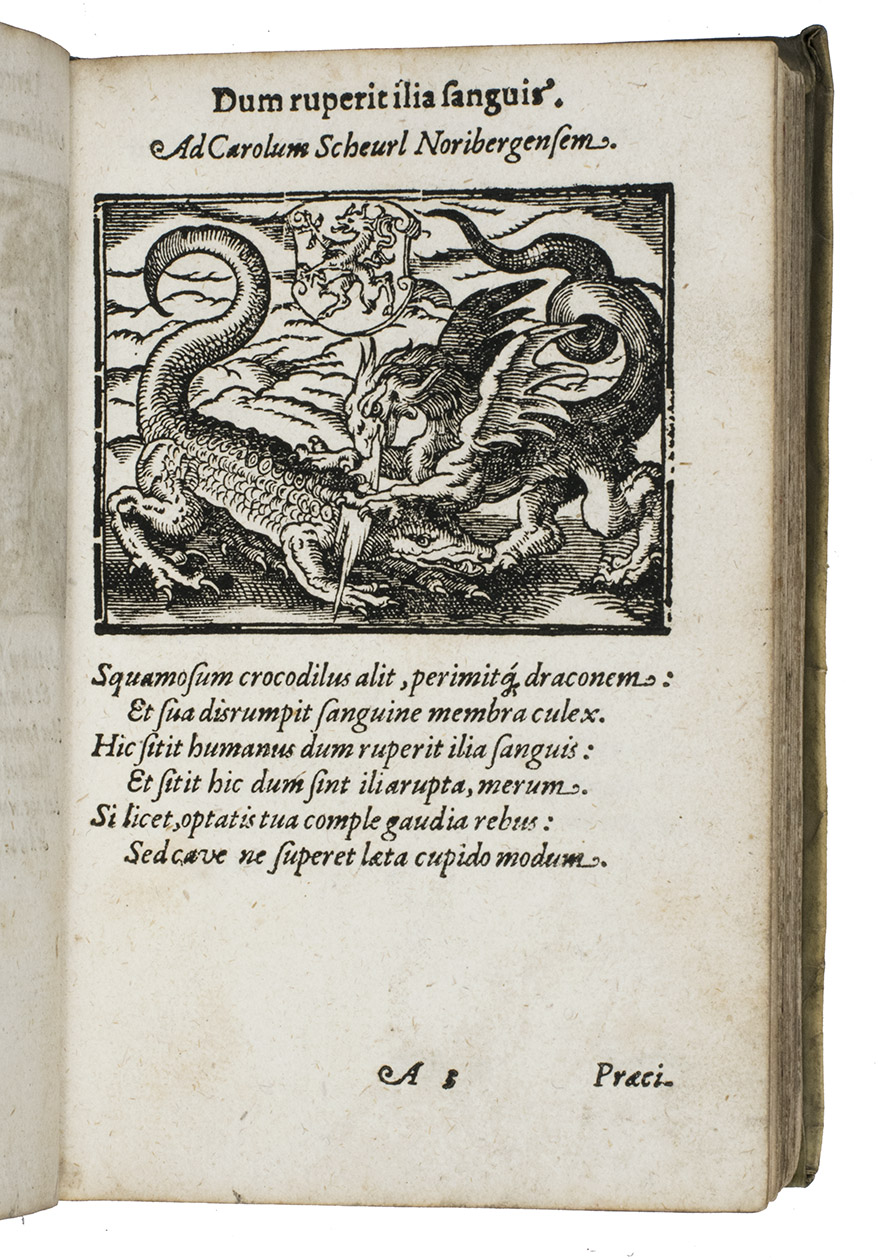 Dum ruperit ilia ſanguis.
Ad Carolum Scheurl Noribergenſem.
Squamoſum crocodilus alit, perimitq́; draconem:
Et ſua disrumpit ſanguine membra culex.
Hic ſitit humanus dum ruperit ilia ſanguis:
Et ſitit hic dum ſint ilia rupta, merum.
Si licet, optatis tua comple gaudia rebus:
Sed cave ne ſuperet læta cupido modum.
A 5 Præci-